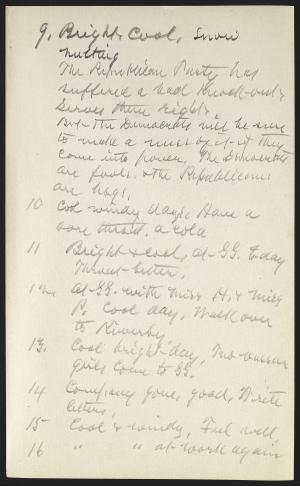 9, Bright & Cool, Snow
melting
The Republican Party has
suffered a bad knock-out &
serves them right,
But the Democrats will be sure
to make a mess of it if they
come into power. The Democrats
are fools & the Republicans
are hogs.
10 Cool windy days. Have a
sore throat, a cold
11 Bright & cool, at SS. to day
Throat better.
12. At SS. with Miss H. & Miss
P. Cool day, Walk over
to Riverby
13. Cool bright day, Two vassar
girls come to SS.
14 Company gone, good, Write
letters,
15 Cool & windy, Feel well,
16 " " at work again